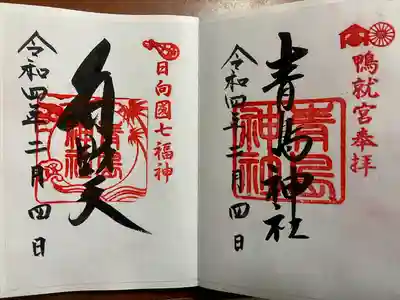 鴨就宮奉拝
青島神社
青島
神社
令和四年二月四日
日向國七福神
弁財天
青島
神社
令和四年二月四日